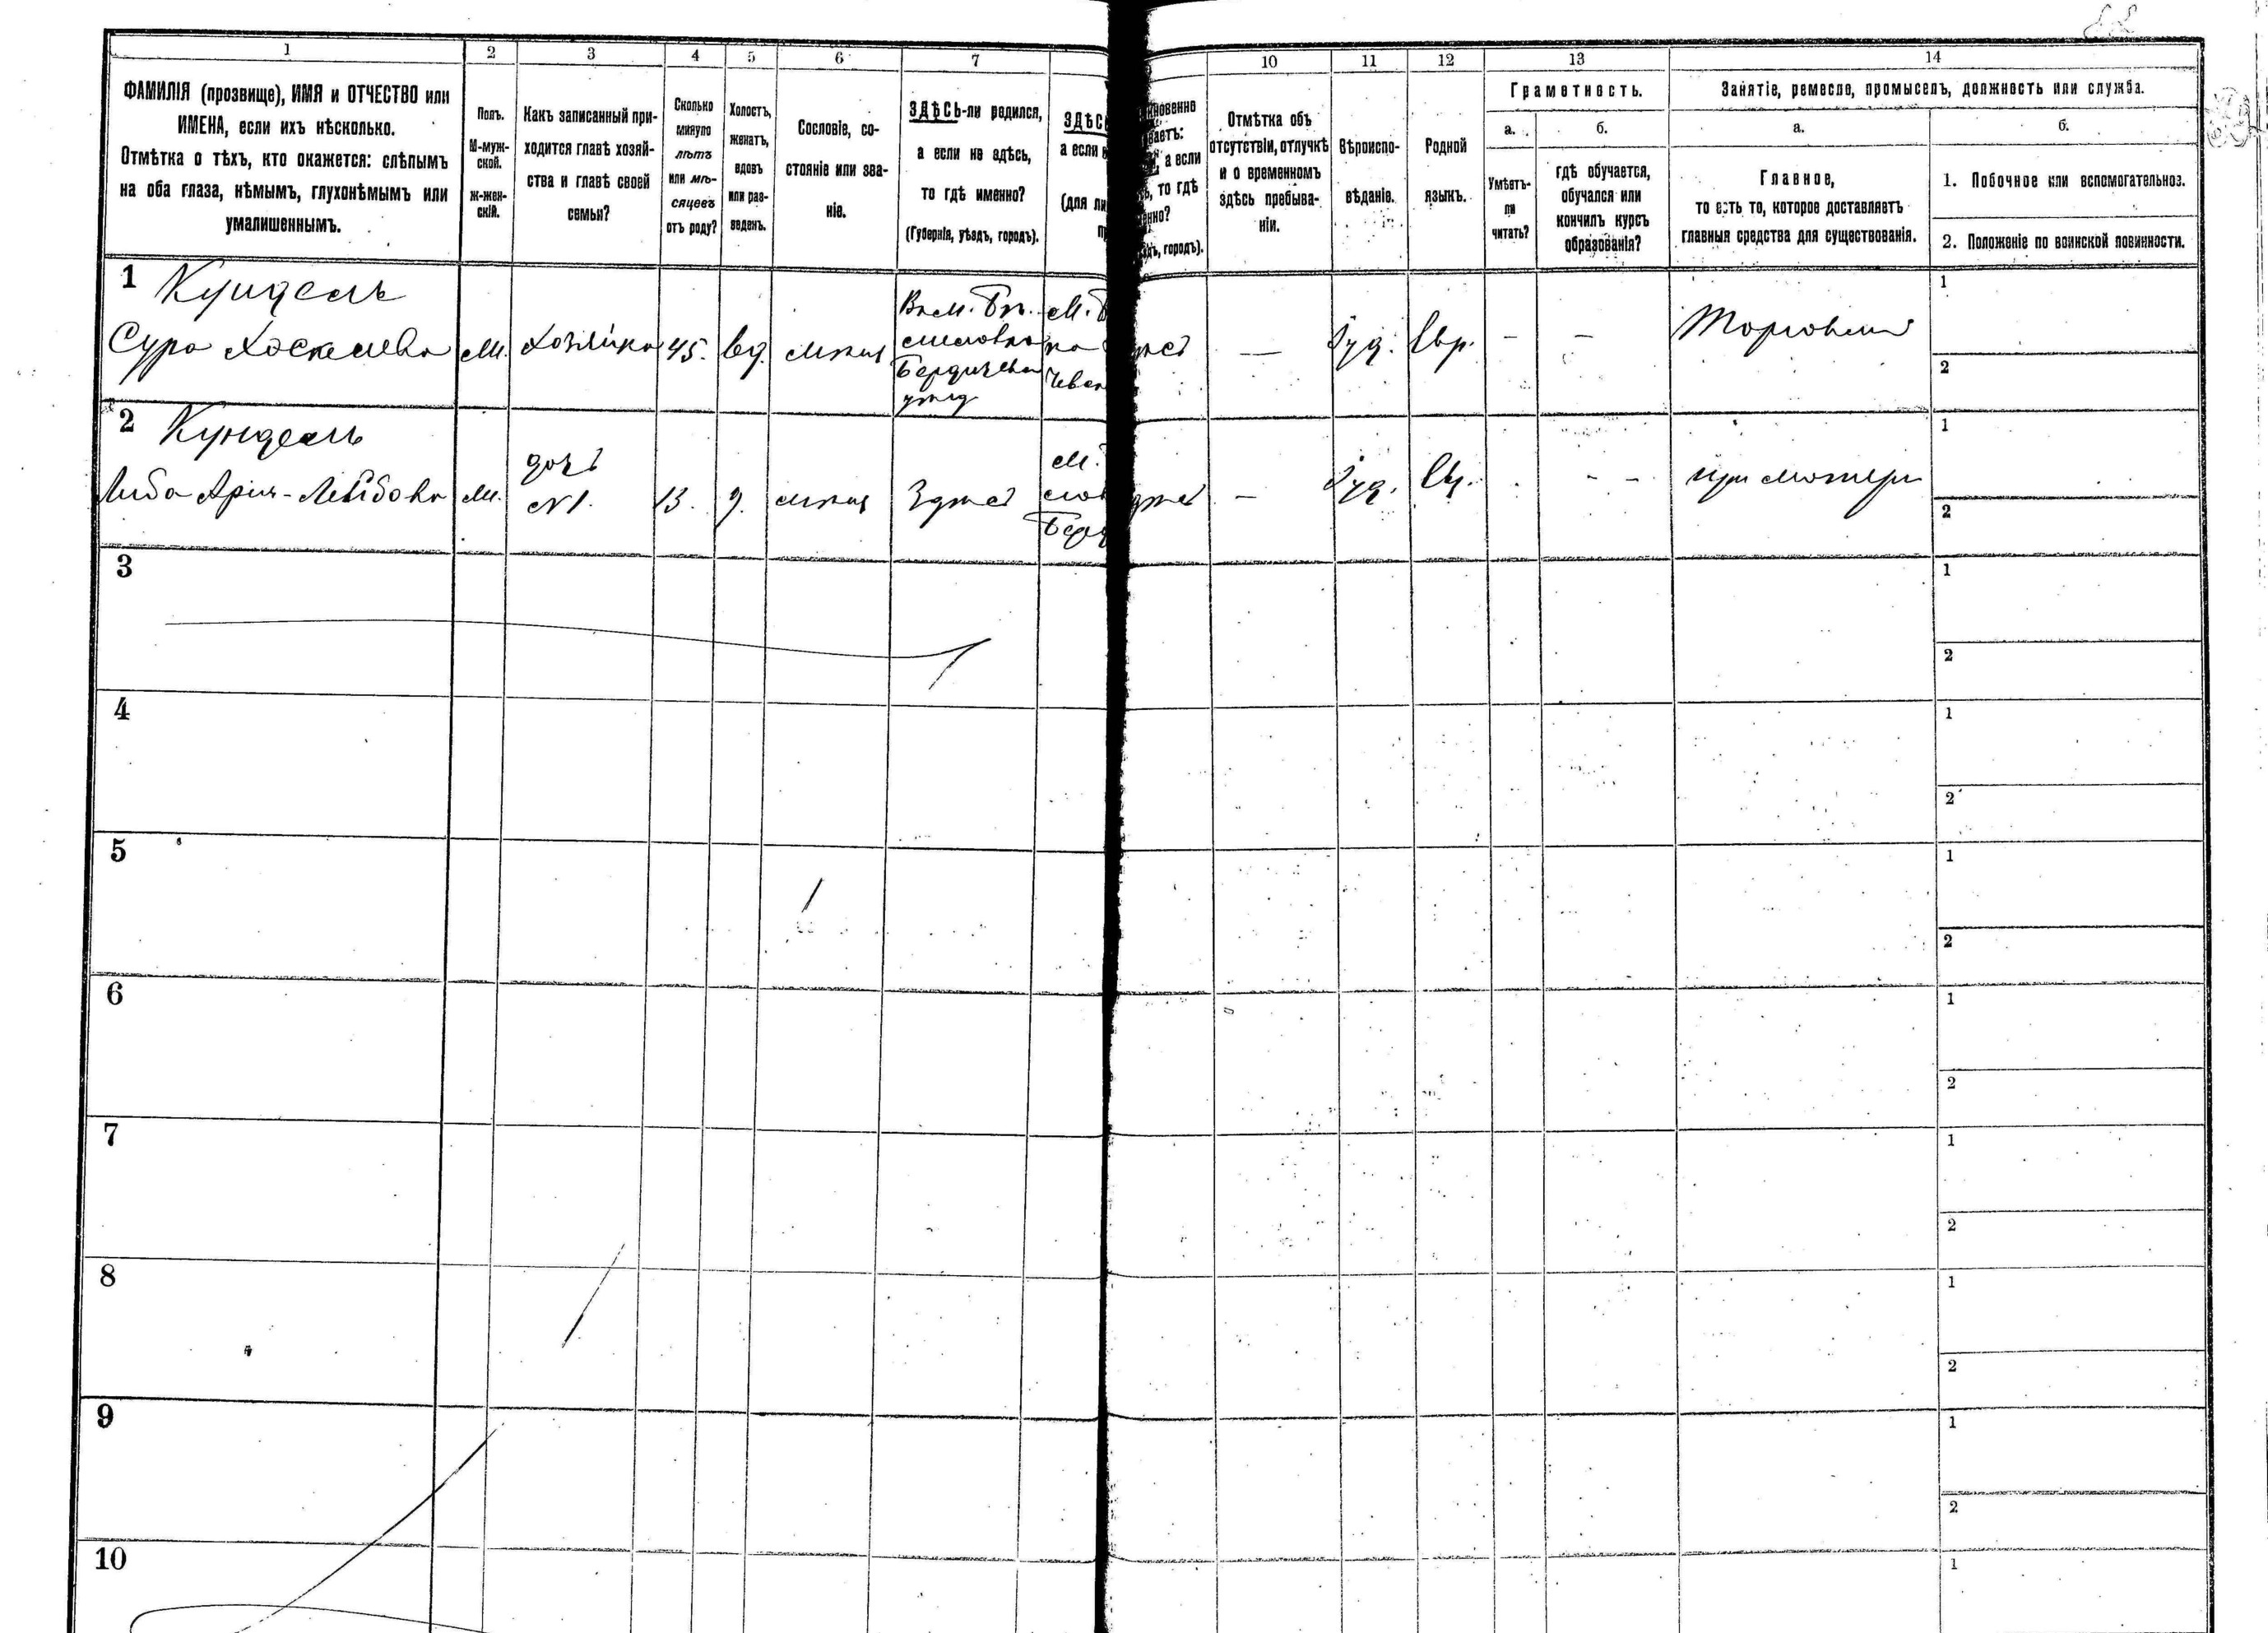 1
2
3
4
5
6
7
10
11
12
13
14
ФАМИЛІЯ (прозвище), ИМЯ и ОТЧЕСТВО или
ИМЕНА, если ихъ нѣсколько.
Отмѣтка о тѣхъ, кто окажется: слѣпымъ
на оба глаза, нѣмымъ, глухонѣмымъ или
умалишеннымъ.
Полъ.
М-муж-
ской.
Ж-жен-
скій.
Какъ записанный при-
ходится главѣ хозяй-
ства и главѣ своей
семьи?
Сколько
минуло
лѣтъ
или мѣ-
сяцевъ
отъ роду?
Холостъ,
женатъ,
вдовъ
или раз-
веденъ.
Сословіе, со-
стояніе или зва-
ніе.
ЗДѢСЬ-ли родился,
а если не здѣсь,
то гдѣ именно?
(Губернія, уѣздъ, городъ).
ЗДѢС
а если
(для ли
а если
то гдѣ
городъ).
Отмѣтка объ
отсутствіи, отлучкѣ
и о временномъ
здѣсь пребыва-
ніи.
Вѣроиспо-
вѣданіе.
Родной
языкъ.
Грамотность.
а.
б.
Умѣетъ-
ли
читать?
гдѣ обучается,
обучался или
кончилъ курсъ
образованія?
Занятіе, ремесло, промыселъ, должность или служба.
а.
б.
Главное,
то есть то, которое доставляетъ
главныя средства для существованія.
1. Побочное или вспомогательное.
2. Положеніе по воинской повинности.
1 Кундель
Сура Хаскелева
М.
Хозяйка
45.
вд.
Бердичевск
—
Іуд.
Евр.
-
-
Торговля
1
2
2 Кундель
Либа Арія-Лейбова
М.
дочь
№1.
13.
д.
Здѣсь
—
Іуд.
Ев.
- -
при матери
1
2
3
1
2
4
1
2
5
1
2
6
1
2
7
1
2
8
1
2
9
1
2
10
1